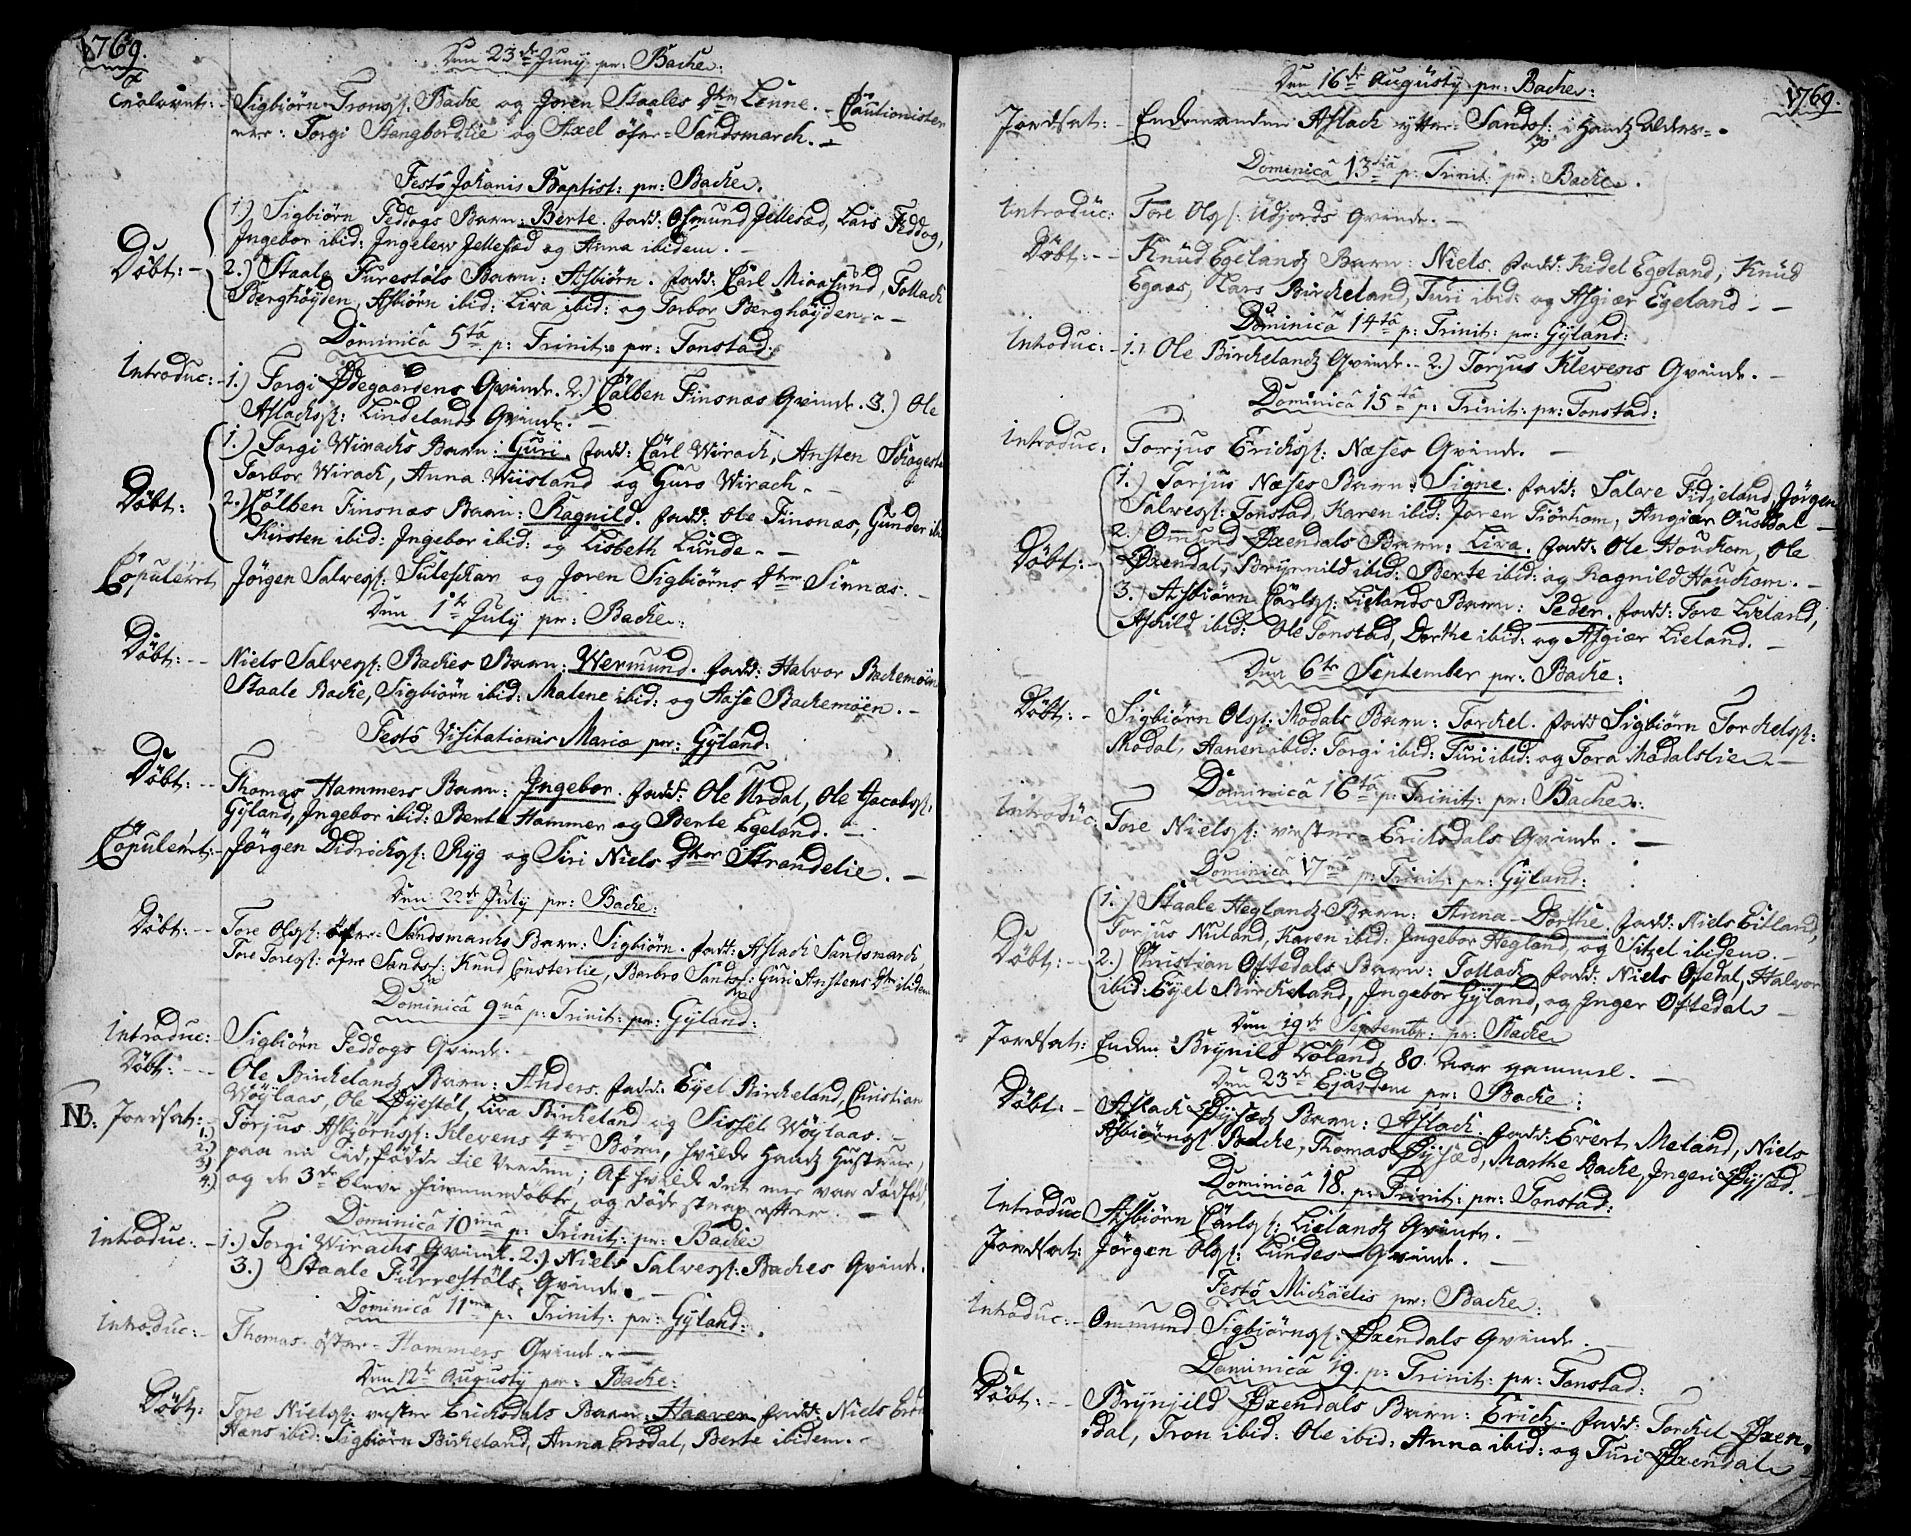 1769.
Den 23de Junÿ pr: Backe:
Sigbiörn Trongs: Backe og Joren Staales Dtr Lenne. Cautionister
er: Torgi Stangbordlie og Axel öfre-Sandsmarck.
Festo Johanis Baptist: pr: Backe.
Döbt:
1.) Sigbiörn Feddogs Barn: Berte. fadd: Osmund Jellesæd, Lars Feddog,
Ingebor ibid: Ingelew Jellesæd og Anna ibidem.
2.) Staale Furestöls Barn: Asbiörn. fadd: Carl Miaasund, Tollack
Berghöÿden, Asbiörn ibid: Liva ibid: og Torbor Berghöÿden.
Dominica 5ta p: Trinit: pr: Tonstad:
Introduc: 1.) Torgi Ödegaardens Qvinde. 2.) Cölben Finsnæs Qvinde. 3.) Ole
Aslachs: Lindelands Qvinde.
Döbt:
1.) Torgi Wirachs Barn: Guri. fadd: Carl Wirach, Ansten Schagest
Torbor Wirack, Anna Wiisland og Guro Wirach.
2.) Cölben Finsnæs Barn: Ragnild. fadd: Ole Finsnæs, Gunder ibi
Kirsten ibid: Ingebor ibid: og Lisbeth Lunde.
Copuleret Jörgen Salvegs: Suleskar og Joren Sigbiörns Dtr Sirnæs.
Den 1te Julÿ pr: Backe:
Döbt: Niels Salvegs: Backes Barn: Wermund. fadd: Halvor Backemöen
Staale Backe, Sigbiörn ibid: Malene ibid: og Aase Backemöen.
Festo Visitationis Mariæ pr: Gÿland:
Döbt: Thomas Hammers Barn: Ingebor. fadd: Ole Urdal, Ole Jacobs:
Gÿland, Ingebor ibid: Berte Hammer og Berte Egeland.
Copuleret: Jörgen Didricks: Rÿg og Siri Niels Dtter Strandelie.
Den 22de Julÿ pr: Backe:
Döbt: Tore Ols: öfre-Sandsmarks Barn: Sigbiörn. fadd: Aslack Sandsmarck,
Tore Tores: öfre Sands: Knud Consterlie, Barbro Sands: Guri Anstens Dtr ibidem
Dominica 9na p: Trinit: pr: Gÿland:
Introduc: Sigbiörn Feddogs Qvinde.
Döbt: Ole Birckelands Barn: Anders. fadd: Eÿel Birckeland, Christian
Wöÿlaas, Ole Öÿestöl, Liva Birckeland og Sissel Wöÿlaas.
NB: Jordsat: 1.) Torjus Asbiörns: Klevens 4re Börn, hvilde hands Hustrue,
2.) 3.) paa en Tid födde til Verden; Af hvilde det ene var dödföd,
4.) og de 3de bleve hiemmedöbte, og döde strax efter.
Dominica 10ma p: Trinit: pr: Backe
Introduc: 1.) Torgi Wirachs Qvinde. 2.) Niels Salvegs: Backes Qvinde.
3.) Staale Furrestöls Qvinde.
Dominica 11ma p: Trinit: pr: Gÿland:
Introduc: Thomas öster-Hammers Qvinde.
Den 12te Augustÿ pr: Backe:
Döbt: Tore Niels: vester Ericksdals Barn: Haaver. fadd: Niels
Hans ibid: Sigbiörn Birkeland, Anna Ersdal, Berte ibidem.
1769.
Den 16de Augustÿ pr: Backe:
Jordsat: Endemanden Aslack ytter Sands: i hands alder
Dominica 13tia p: Trinit: pr: Backe.
Introduc: Tore Ols: Udjords Qvinde.
Döbt: Knud Egelands Barn: Niels. fadd: Kidel Egeland, Knud
Egaas, Lars Birckeland, Turi ibid: og Asgiær Egeland.
Dominica 14ta p: Trinit: pr: Gÿland:
Introduc: 1.) Ole Birckelands Qvinde. 2.) Torjus Klevens Qvinde.
Dominica 15ta p: Trinit: pr: Tonstad:
Introduc: Torjus Ericks: Næses Qvinde.
Döbt:
1.) Torjus Næses Barn: Signe. fadd: Salve Fidjeland, Jörgen
Salvegs: Tonstad, Karen ibid: Joren Tiörhom, Angiær Ousdal
2.) Ommund Öxendals Barn: Liva. fadd: Ole Houkom, Ole
Öxendal, Brÿnnild ibid: Berte ibid: og Ragnild Houkom.
3.) Asbiörn Carls: Lielands Barn: Peder. fadd: Tore Lieland,
Aschild ibid: Ole Tonstad, Dorthe ibid: og Asgiær Lieland.
Den 6te September pr: Backe:
Döbt: Sigbiörn Ols: Modals Barn: Torckel. fadd: Sigbiörn Torckels:
Modal, Hanen ibid: Torgi ibid: Turi ibid: og Tora Modalslie.
Dominica 16ta p: Trinit: pr: Backe:
Introduc: Tore Niels: vester-Ericksdals Qvinde.
Dominica 17ma p: Trinit: pr: Gÿland:
Döbt:
1.) Staale Heglands Barn: Anna-Dorthe. fadd: Niels Eitland,
Torjus Nuland, Karen ibid: Ingebor Hegland og Sitzel ibidem.
2.) Christian Oftedals Barn: Tollack fadd: Niels Oftedal, Halvor
ibid: Eÿel Birckeland, Ingebor Gÿland, og Inger Oftedal
Den 19de Septembr: pr: Backe
Jordsat: Enken Brÿnild Löland, 80 Aar gammel.
Den 23de Ejusdem pr: Backe:
Döbt: Aslack Öÿsæds Barn: Aslack. fadd: Evert Meland, Niels
Asbiörns: Backe, Thomas Öÿsæd, Marthe Backe, Ingeri Öÿsæd.
Dominica 18. p: Trinit: pr: Tonstad:
Introduc Asbiörn Carls: Lielands Qvinde.
Jordsat: Jörgen Ols: Lundes Qvinde.
Festo Michaëlis pr: Backe:
Introduc: Ommund Sigbiörns: Öxendals Qvinde.
Dominica 19. p: Trinit: pr: Tonstad:
Döbt: Brÿnjild Öxendals Barn: Erick. fadd: Torckel Öxen,
dal, Tron ibid: Ole ibid: Anna ibid: og Turi Öxendal